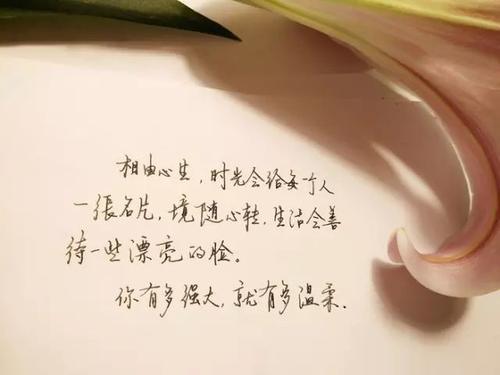 相由心生，时光会给每个人
一張名片，境随心转，生活会善
待一些漂亮的脸。
你有多强大，就有多温柔．